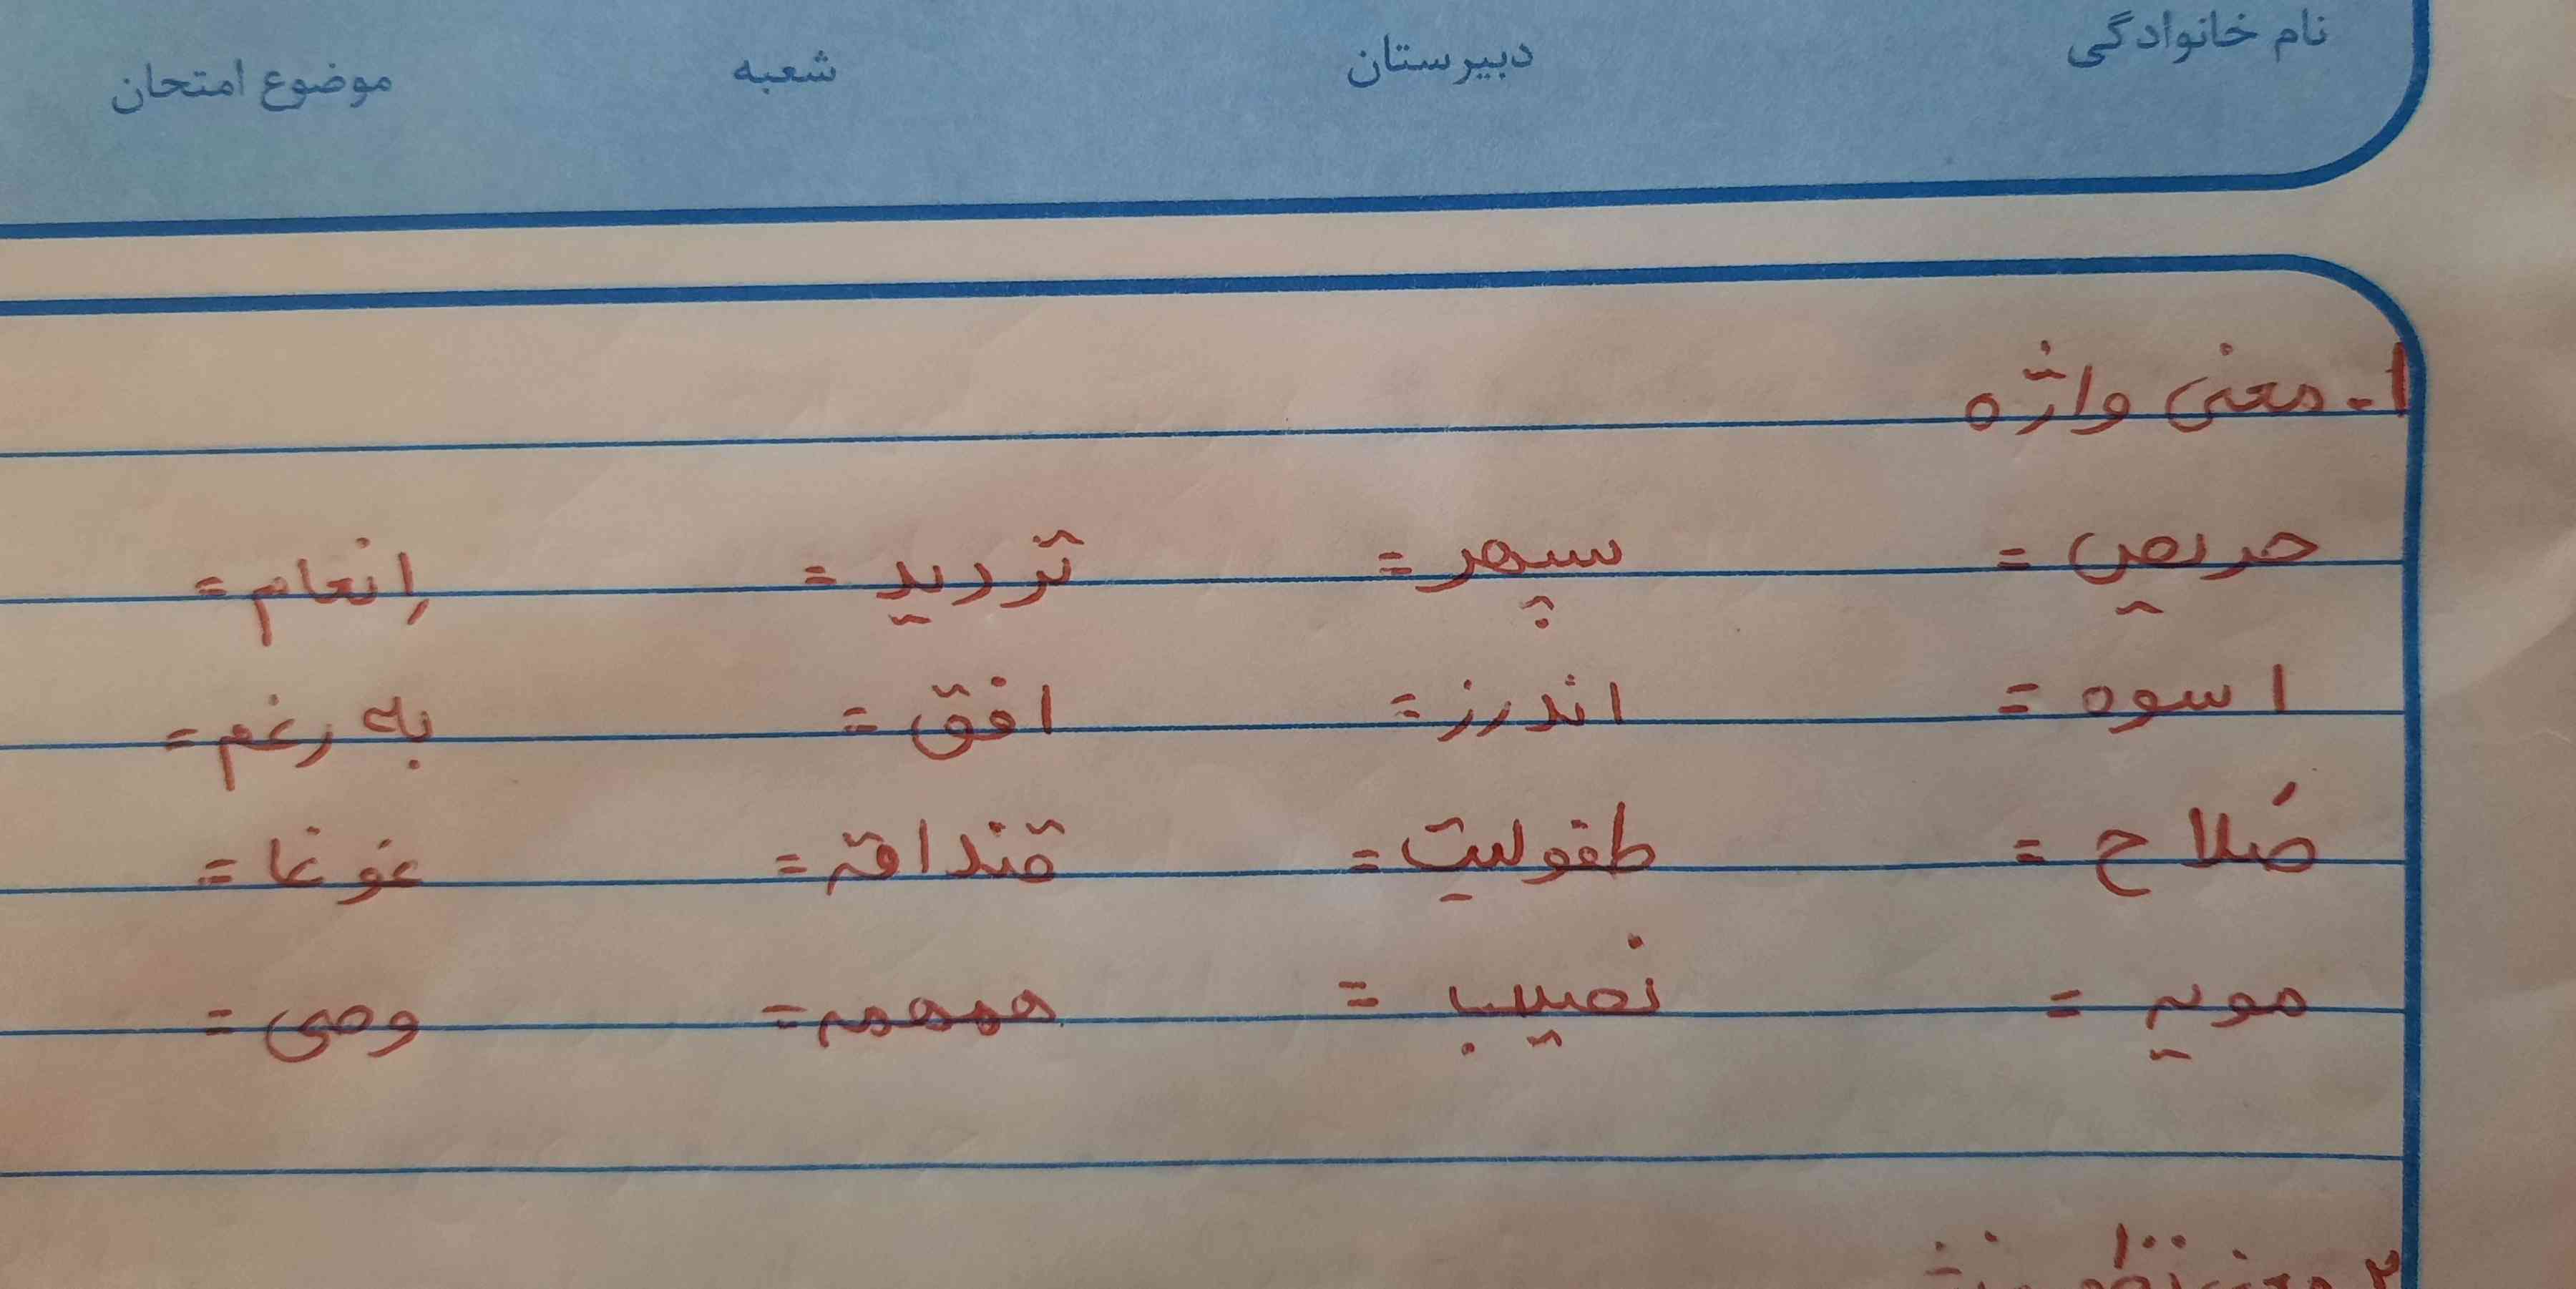 نام خانوادگی دبیرستان شعبه موضوع امتحان
۱- معنی واژه
حریص = سپهر = تردید = اِنعام =
اسوه = اندرز = افق = به رغم =
صَلاح = طفولیت = قنداقه = غوغا =
مویه = نصیب = همهمه = وصی =
۲ معنی نظم و نثر